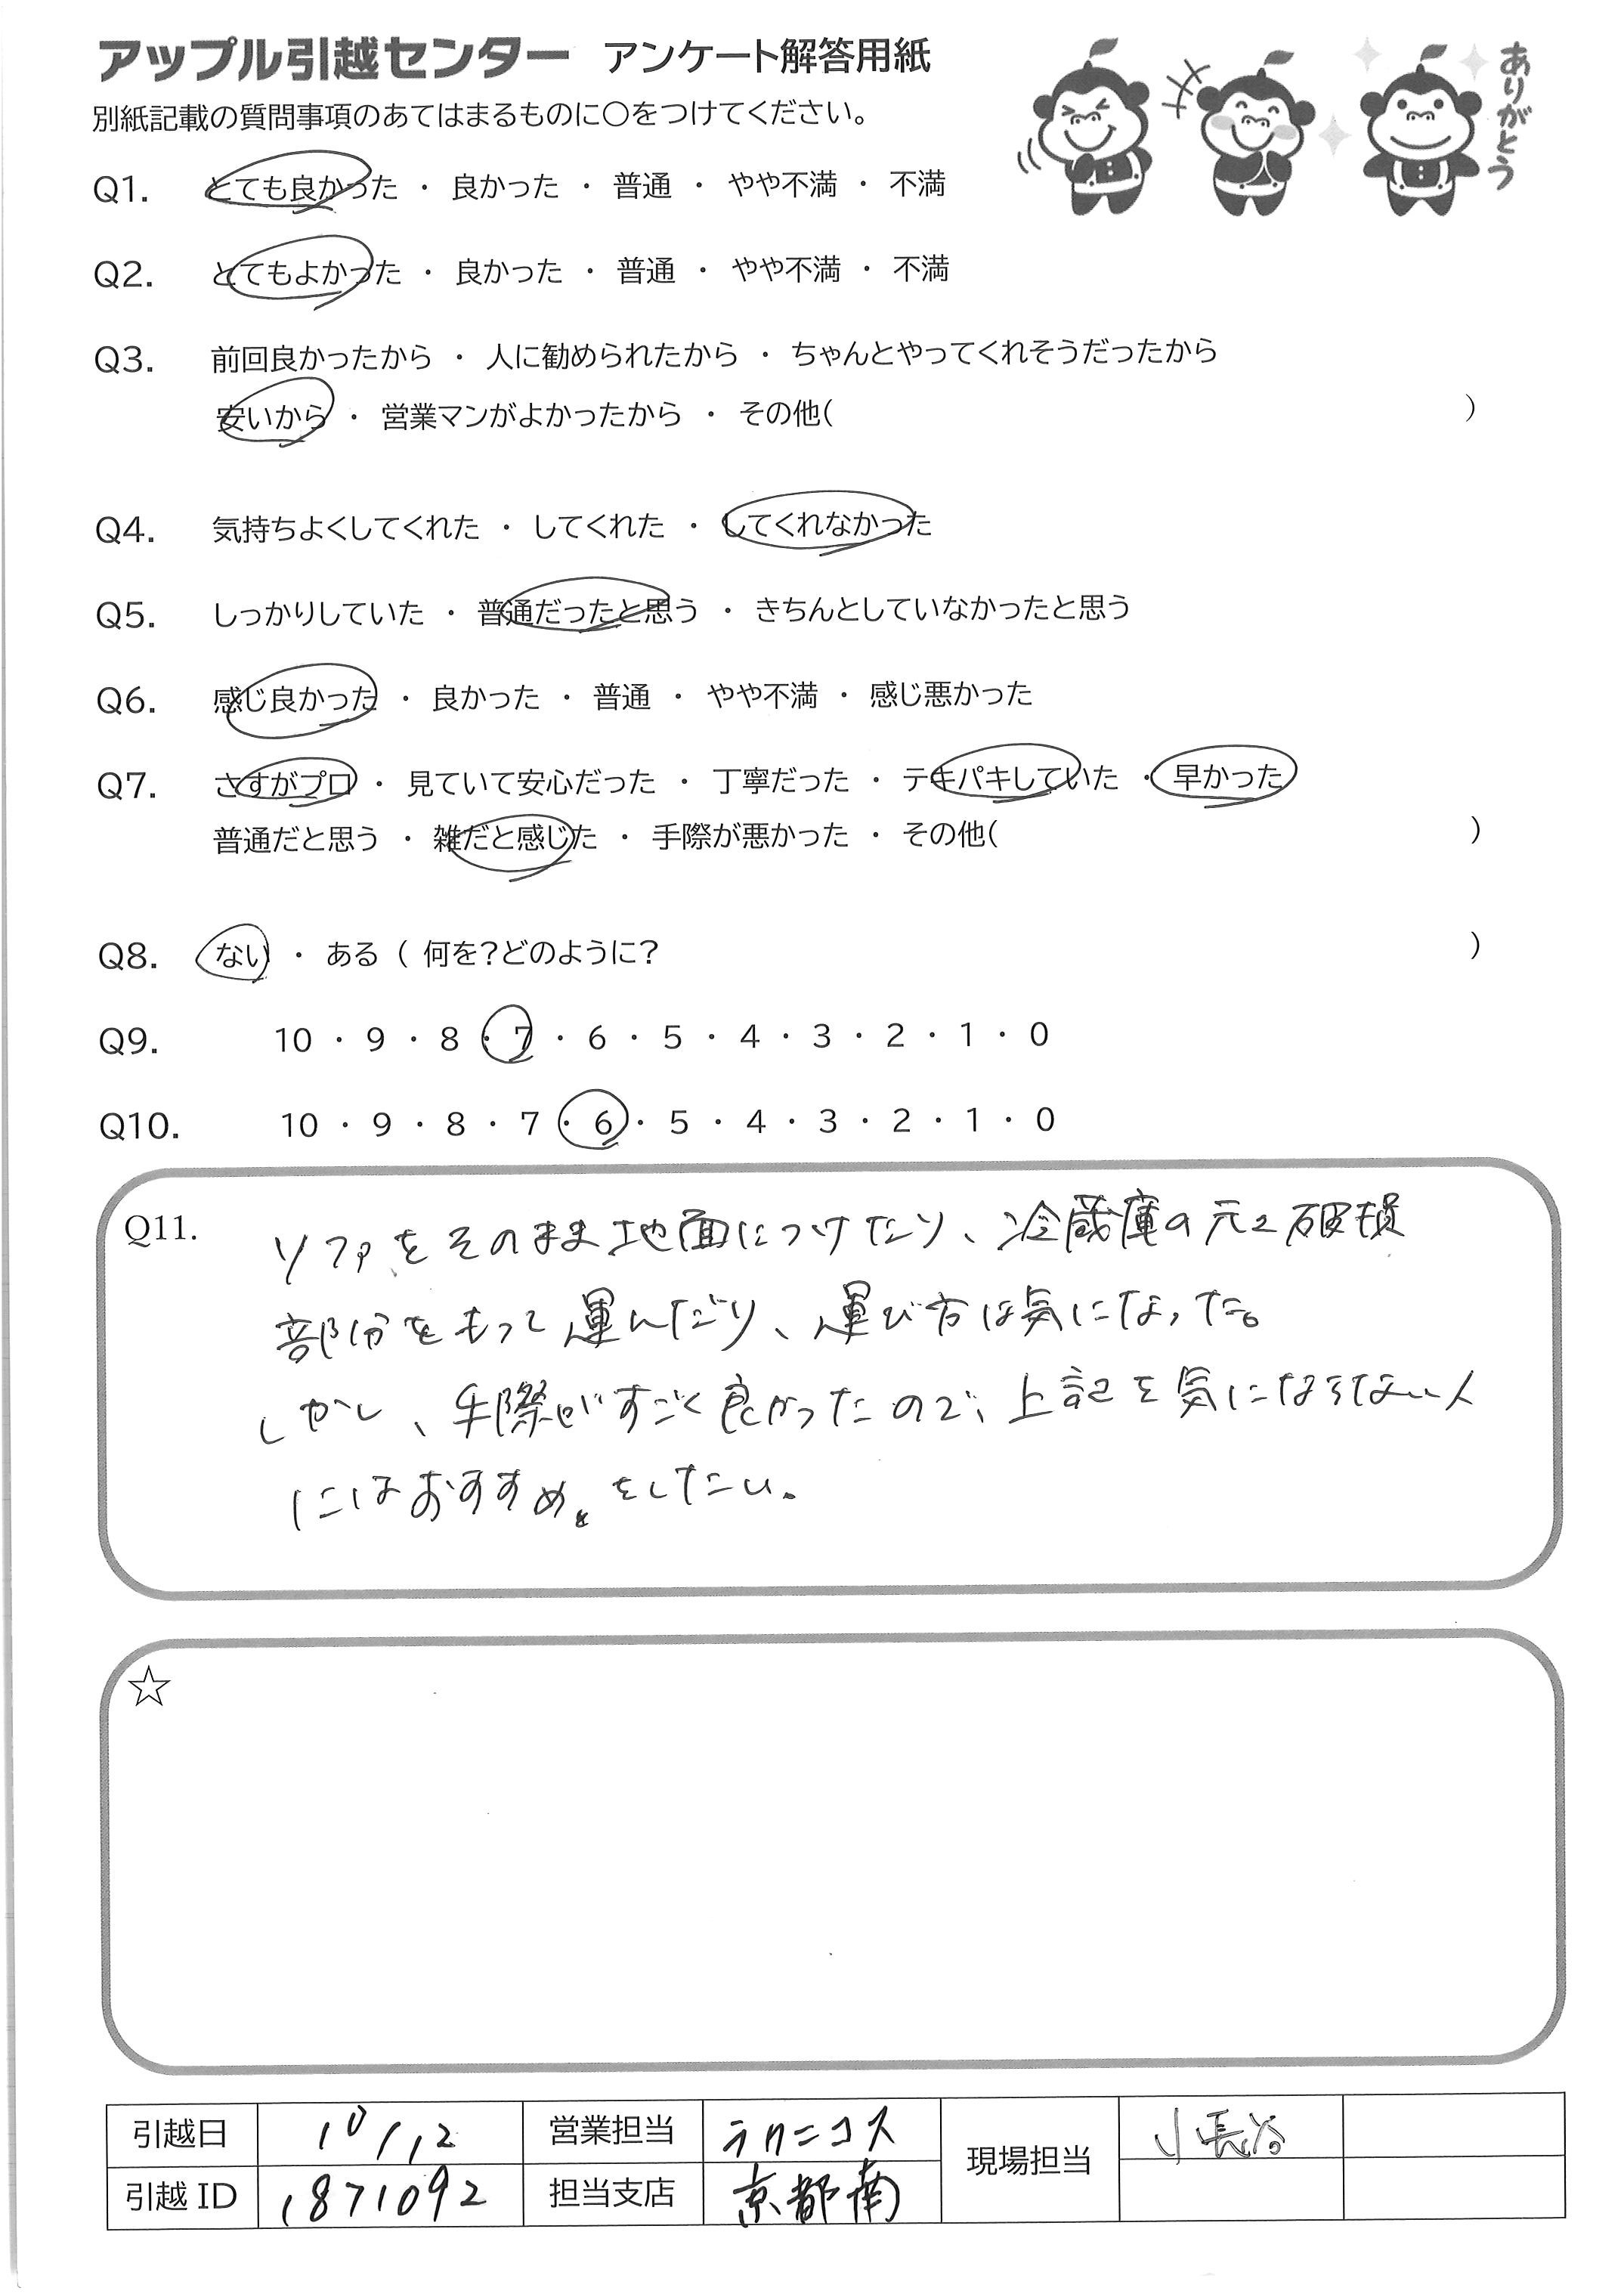 アップル引越センター アンケート解答用紙
ありがとう
別紙記載の質問事項のあてはまるものに○をつけてください。
Q1. とても良かった ・ 良かった ・ 普通 ・ やや不満 ・ 不満
Q2. とてもよかった ・ 良かった ・ 普通 ・ やや不満 ・ 不満
Q3. 前回良かったから ・ 人に勧められたから ・ ちゃんとやってくれそうだったから
安いから ・ 営業マンがよかったから ・ その他( )
Q4. 気持ちよくしてくれた ・ してくれた ・ してくれなかった
Q5. しっかりしていた ・ 普通だったと思う ・ きちんとしていなかったと思う
Q6. 感じ良かった ・ 良かった ・ 普通 ・ やや不満 ・ 感じ悪かった
Q7. さすがプロ ・ 見ていて安心だった ・ 丁寧だった ・ テキパキしていた ・ 早かった
普通だと思う ・ 雑だと感じた ・ 手際が悪かった ・ その他( )
Q8. ない ・ ある ( 何を?どのように? )
Q9. 10 ・ 9 ・ 8 ・ 7 ・ 6 ・ 5 ・ 4 ・ 3 ・ 2 ・ 1 ・ 0
Q10. 10 ・ 9 ・ 8 ・ 7 ・ 6 ・ 5 ・ 4 ・ 3 ・ 2 ・ 1 ・ 0
Q11. ソファをそのまま地面につけたり、冷蔵庫の元々破損
部分をもって運んだり、運び方は気になった。
しかし、手際がすごく良かったので、上記を気にならない人
にはおすすめをしたい。
☆
引越日 10/12 営業担当 現場担当 小長谷
引越ID 1871092 担当支店 京都南